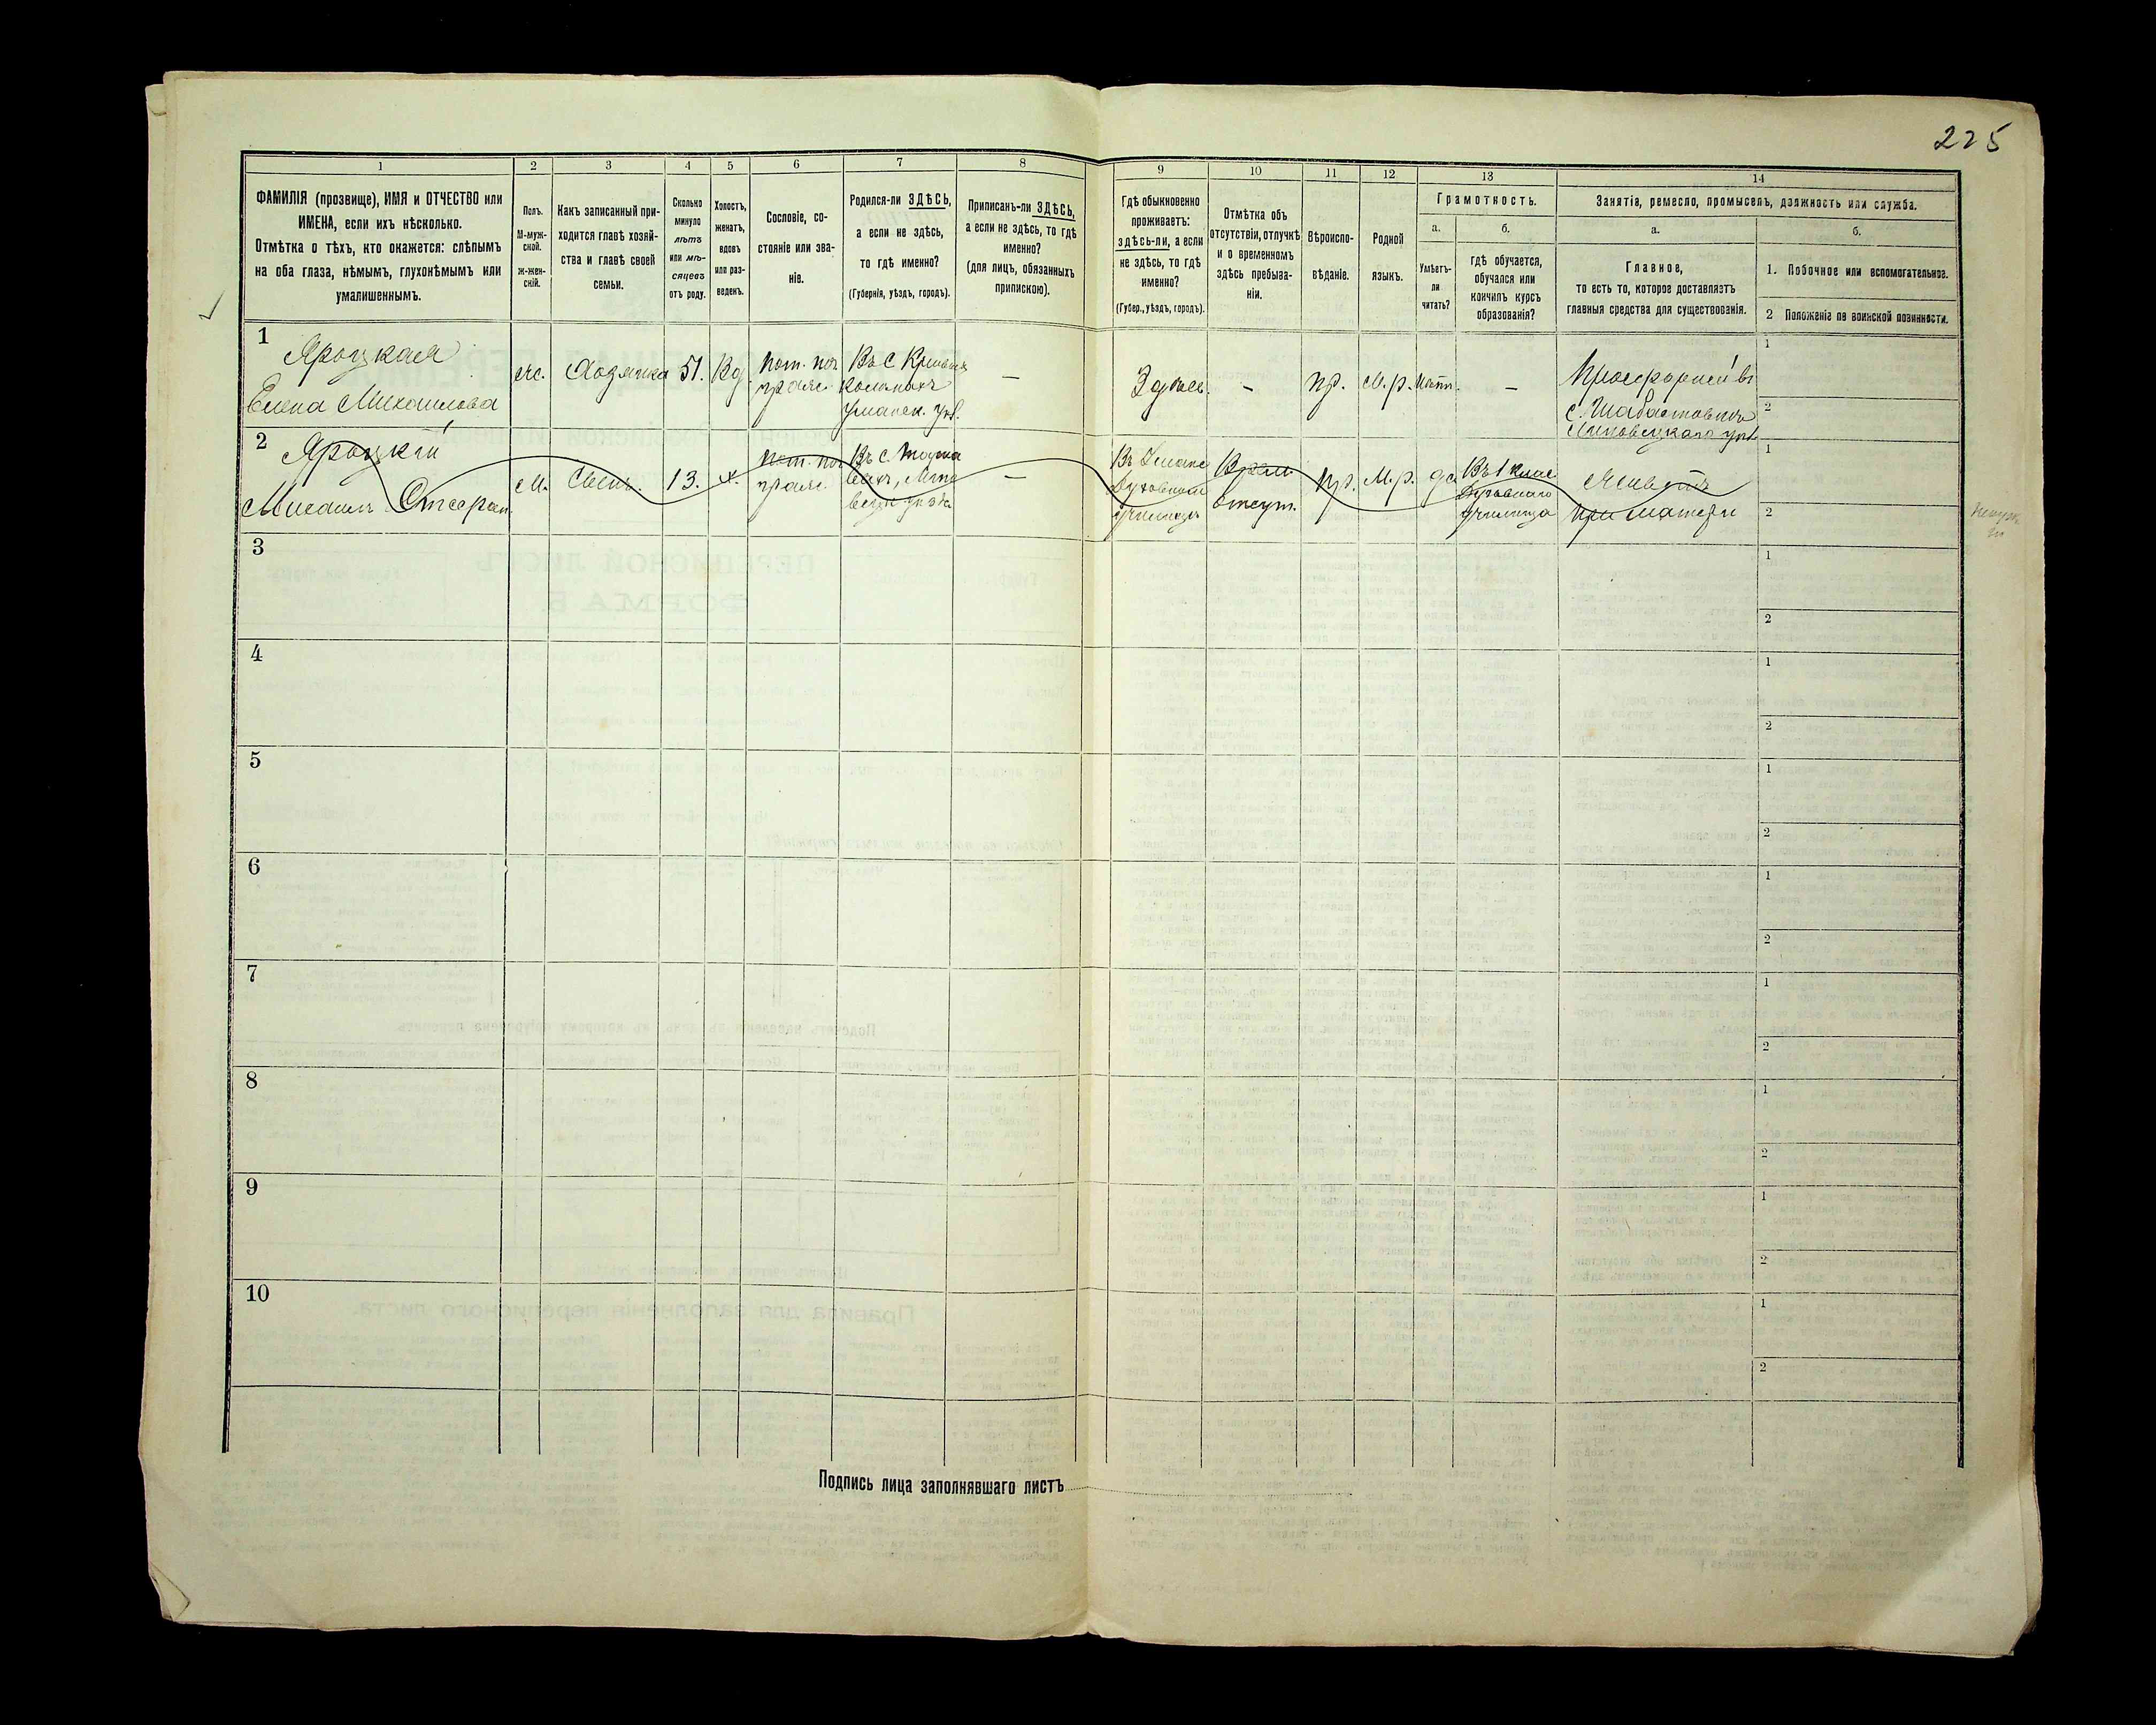 225
1
2
3
4
5
6
7
8
9
10
11
12
13
14
ФАМИЛІЯ (прозвище), ИМЯ и ОТЧЕСТВО или
ИМЕНА, если ихъ нѣсколько.
Отмѣтка о тѣхъ, кто окажется: слѣпымъ
на оба глаза, нѣмымъ, глухонѣмымъ или
умалишеннымъ.
Полъ.
М-муж-
ской.
ж-жен-
скій.
Какъ записанный при-
ходится главѣ хозяй-
ства и главѣ своей
семьи.
Сколько
минуло
лѣтъ
или мѣ-
сяцевъ
отъ роду.
Холостъ,
женатъ,
вдовъ
или раз-
веденъ.
Сословіе, со-
стояніе или зва-
ніе.
Родился-ли ЗДѢСЬ,
а если не здѣсь,
то гдѣ именно?
(Губернія, уѣздъ, городъ).
Приписанъ-ли ЗДѢСЬ,
а если не здѣсь, то гдѣ
именно?
(для лицъ, обязанныхъ
припискою).
Гдѣ обыкновенно
проживаетъ:
здѣсь-ли, а если
не здѣсь, то гдѣ
именно?
(Губер., уѣздъ, городъ).
Отмѣтка объ
отсутствіи, отлучкѣ
и о временномъ
здѣсь пребыва-
ніи.
Вѣроиспо-
вѣданіе.
Родной
языкъ.
Грамотность.
а.
Умѣетъ-
ли
читать?
б.
гдѣ обучается,
обучался или
кончилъ курсъ
образованія?
Занятія, ремесло, промыселъ, должность или служба.
а.
Главное,
то есть то, которое доставляетъ
главныя средства для существованія.
б.
1. Побочное или вспомогательное.
2 Положеніе по воинской повинности.
1
Яроцкая
Елена Михаилова
ж.
Хозяйка
51.
Вд.
пот. поч
гражд.
Въ с Кривыхъ
Колѣнахъ
Уманск. уѣз.
—
Здѣсь.
-
пр.
М.р.
-
въ
с. Шабастовкѣ
Липовецкаго уѣз.
1
2
2
Яроцкій
Михаилъ Стефан.
М.
Сынъ.
13.
х.
пот. поч
гражд.
Въ с.
—
Въ Умани
Духовномъ
училищѣ
Врем.
отсут.
пр.
М. р.
да
Въ 1 клас.
Духовнаго
училища
Живетъ
при матери
1
2
3
1
2
4
1
2
5
1
2
6
1
2
7
1
2
8
1
2
9
1
2
10
1
2
Подпись лица заполнявшаго листъ